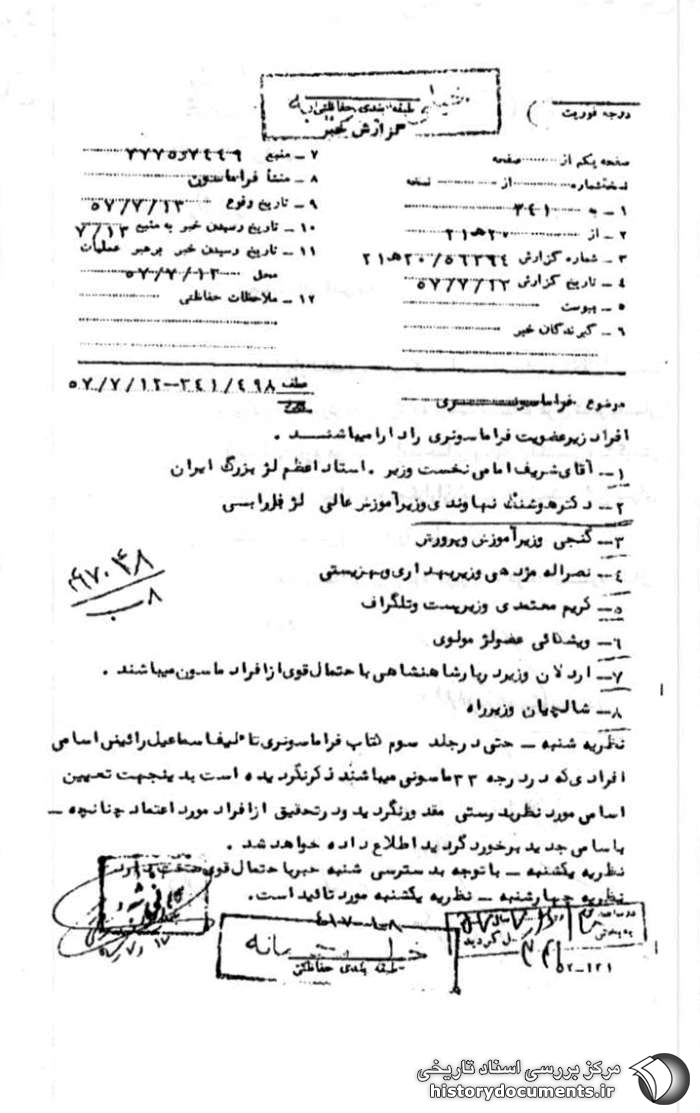 طبقه بندی حفاظتی
گزارش خبر
درجه فوریت (
صفحه یکم از ........ صفحه
نسخه شماره ........ از ........ نسخه
۱ ـ به ۳۴۱
۲ ـ از ۲۰ هـ ۲۱
۳ ـ شماره گزارش ۲۰/۵۶۳۹۴ هـ ۲۱
۴ ـ تاریخ گزارش ۵۷/۷/۱۳
۵ ـ پیوست
۶ ـ گیرندگان خبر
۷ ـ منبع ۷۴۴۹ و ۷۷۷۵
۸ ـ منشأ فراماسون
۹ ـ تاریخ وقوع ۵۷/۷/۱۳
۱۰ ـ تاریخ رسیدن خبر به منبع ۷/۱۳
۱۱ ـ تاریخ رسیدن خبر برهبر عملیات
محل ۵۷/۷/۱۳
۱۲ ـ ملاحظات حفاظتی
موضوع فراماسونری
عطف ۳۴۱/۴۹۸ ـ ۵۷/۷/۱۲
افراد زیر عضویت فراماسونری را دارا میباشند .
۱ـ آقای شریف امامی نخست وزیر . استاد اعظم لژ بزرگ ایران
۲ـ دکتر هوشنگ نهاوندی وزیر آموزش عالی لژ فرانسی
۳ـ گنجی وزیر آموزش وپرورش
۴ـ نصراله مژدهی وزیر بهداری وبهزیستی
۵ـ کریم معتمدی وزیر پست وتلگراف
۶ـ ویشکائی عضو لژ مولوی
۷ـ اردلان وزیر دربار شاهنشاهی با حتمال قوی از افراد ماسون میباشند .
۸ـ شالچیان وزیر راه
نظریه شنبه ـ حتی در جلد سوم کتاب فراماسونری تألیف اسماعیل رائین اسامی
افرادی که در درجه ۳۳ ماسونی میباشند ذکر نگردیده است بدینجهت تعیین
اسامی مورد نظر بدرستی مقدور نگردید و در تحقیق از افراد مورد اعتماد چنانچه ـ
با سامی جدید برخورد گردید اطلاع داده خواهد شد .
نظریه یکشنبه ـ با توجه به دسترسی شنبه خبر با حتمال قوی صحت دارد
نظریه چهارشنبه ـ نظریه یکشنبه مورد تائید است .
۴۷۰۴۸
۸ ب
خیلی محرمانه
طبقه بندی حفاظتی
۵۲-۱۲۱
مرکز بررسی اسناد تاریخی
historydocuments.ir